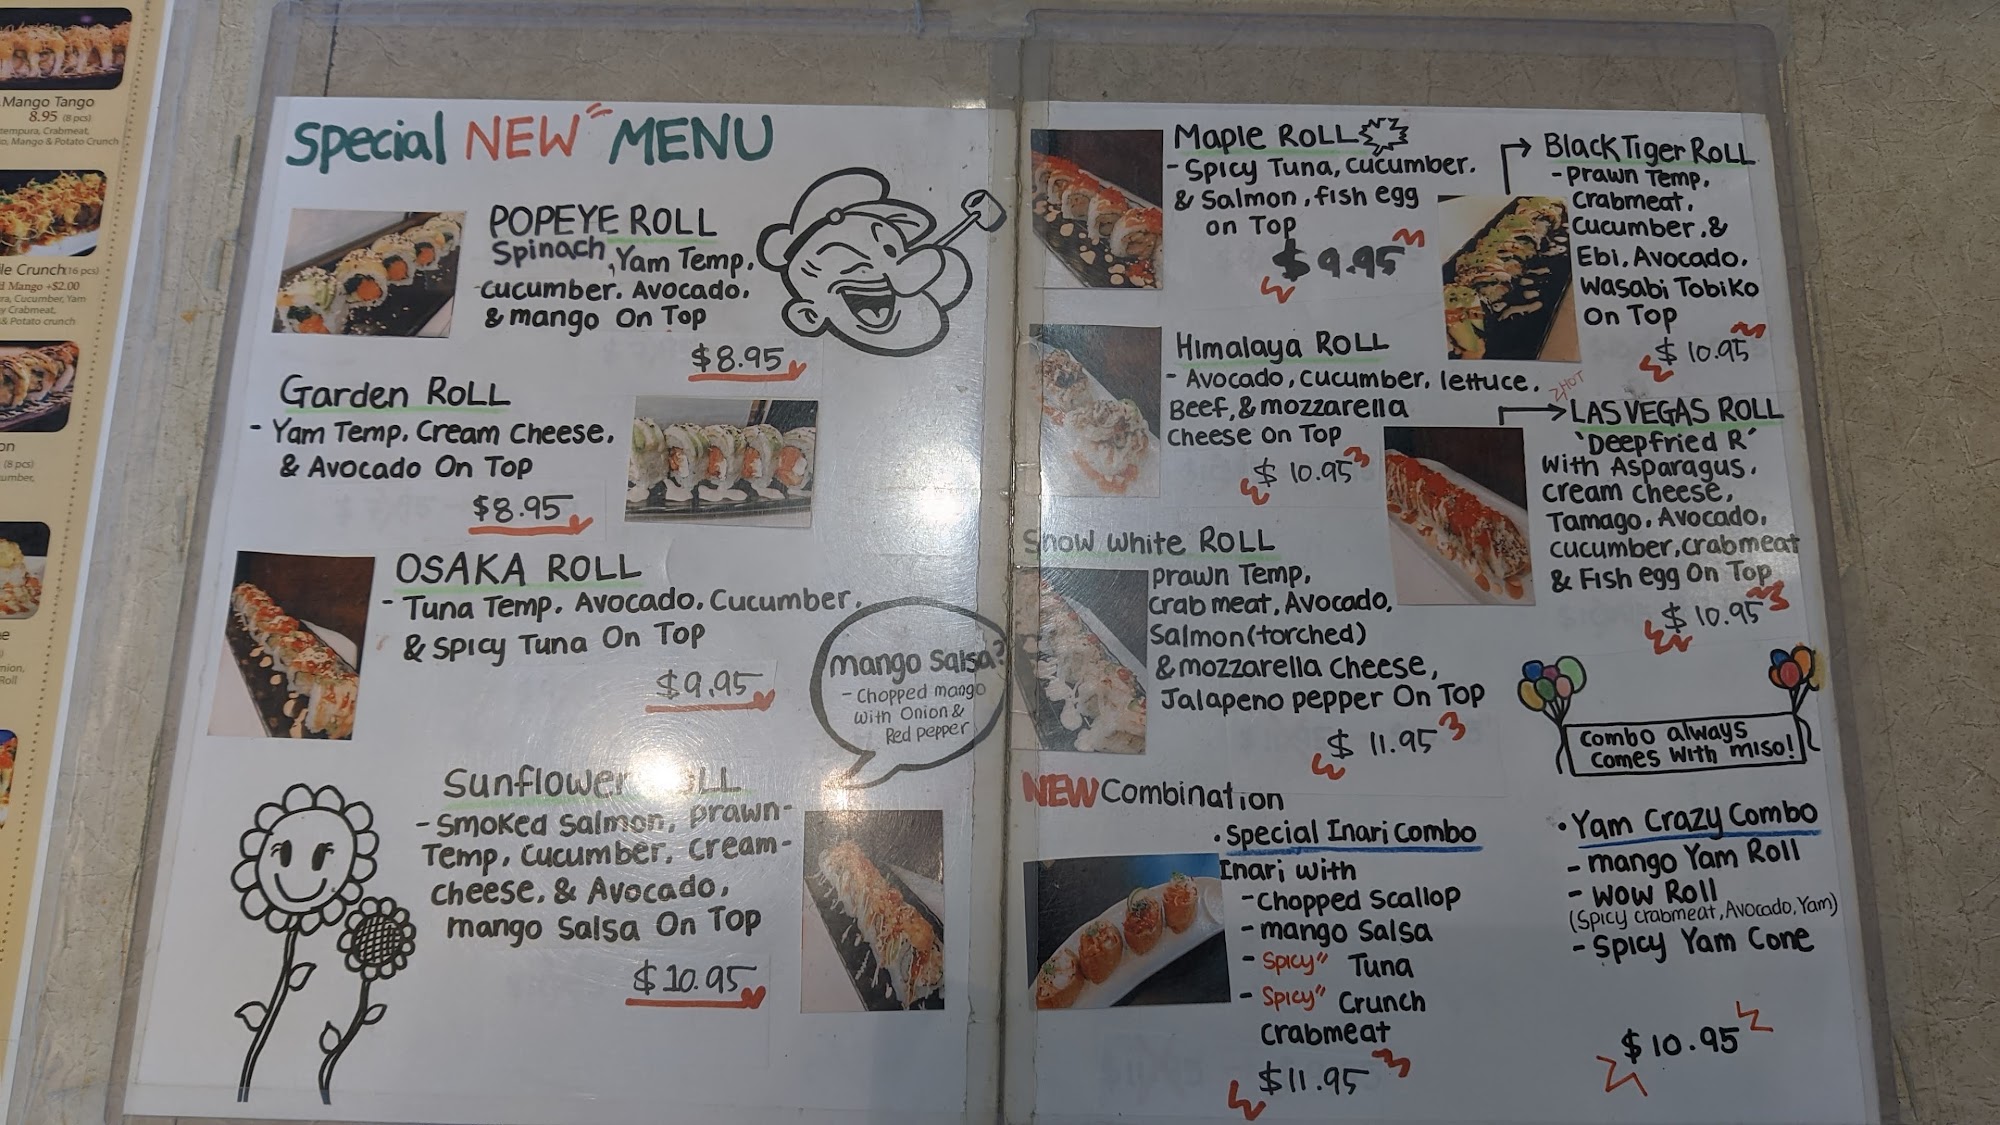 Mango Tango
8.95 (8 pcs)
tempura, Crabmeat,
Mango & Potato Crunch
Crunch(16 pcs)
Mango +$2.00
Cucumber, Yam
Crabmeat,
& Potato crunch
(8 pcs)
Roll
Special NEW MENU
POPEYE ROLL
Spinach, Yam Temp,
cucumber, Avocado,
& mango On Top
$8.95
Garden RoLL
- Yam Temp, Cream Cheese,
& Avocado On Top
$8.95
OSAKA ROLL
- Tuna Temp, Avocado, Cucumber,
& Spicy Tuna On Top
$9.95
mango Salsa?
- Chopped mango
with Onion &
Red pepper
Sunflower
- Smoked Salmon, prawn-
Temp, cucumber, cream-
cheese, & Avocado,
mango Salsa On Top
$10.95
Maple RoLL
- Spicy Tuna, cucumber,
& Salmon, fish egg
on Top
$9.95
Himalaya ROLL
- Avocado, cucumber, lettuce,
Beef, & mozzarella
Cheese On Top
$10.95
Snow White ROLL
prawn Temp,
crab meat, Avocado,
Salmon (torched)
& mozzarella cheese,
Jalapeno pepper On Top
$11.95
Black Tiger ROLL
- prawn Temp,
Crabmeat,
cucumber, &
Ebi, Avocado,
Wasabi Tobiko
On Top
$10.95
HOT
LAS VEGAS ROLL
'Deepfried R'
with Asparagus,
cream cheese,
Tamago, Avocado,
cucumber, crabmeat
& Fish egg On Top
$10.95
combo always
comes with miso!
NEW Combination
• Special Inari Combo
Inari with
- Chopped Scallop
- mango Salsa
- Spicy" Tuna
- Spicy" Crunch
Crabmeat
$11.95
• Yam Crazy Combo
- mango Yam Roll
- WOW Roll
(Spicy crabmeat, Avocado, Yam)
- Spicy Yam Cone
$10.95